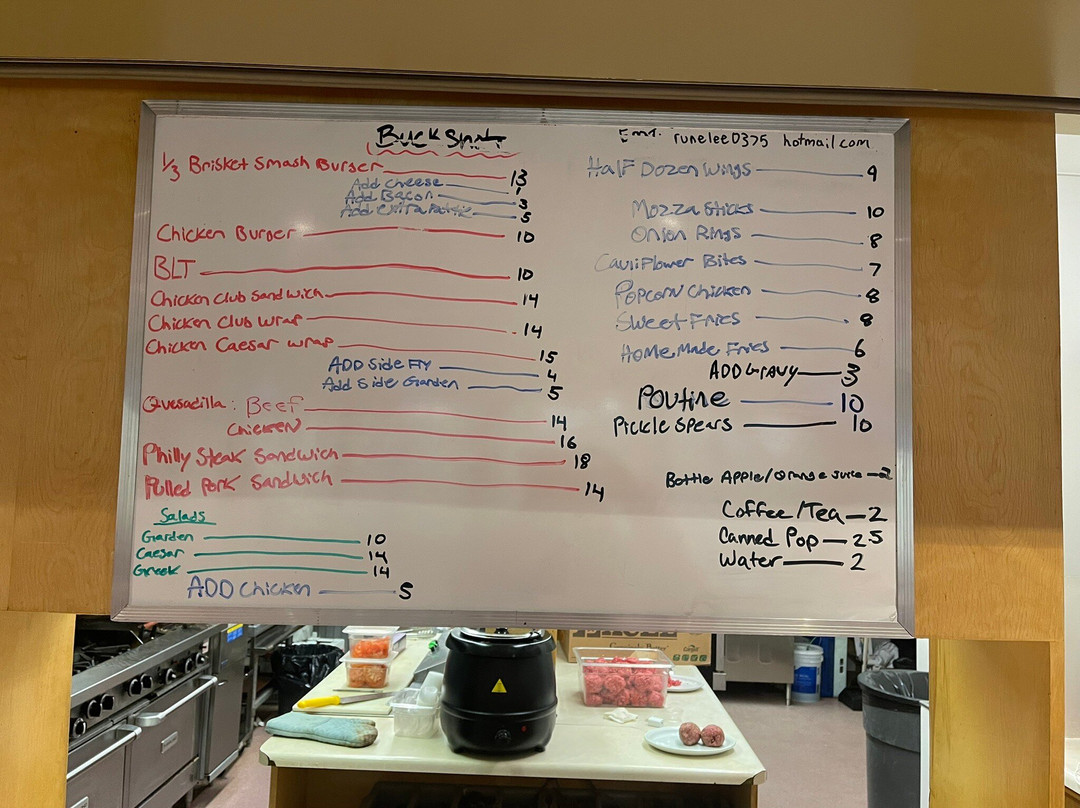 Buck Shot
1/3 Brisket Smash Burger 13
Add Cheese 1
Add Bacon 3
Add extra Pattie 5
Chicken Burger 10
BLT 10
Chicken Club Sandwich 14
Chicken Club Wrap 14
Chicken Caesar Wrap 15
ADD Side Fry 4
Add Side Garden 5
Quesadilla: Beef 14
Chicken 16
Philly Steak Sandwich 18
Pulled Pork Sandwich 14
Salads
Garden 10
Caesar 14
Greek 14
ADD Chicken 5
Emt. runelee0375 hotmail.com
Half Dozen Wings 9
Mozza Sticks 10
Onion Rings 8
Cauliflower Bites 7
Popcorn Chicken 8
Sweet Fries 8
Home Made Fries 6
ADD Gravy 3
Poutine 10
Pickle Spears 10
Bottle Apple/Orange Juice 2
Coffee/Tea 2
Canned Pop 25
Water 2